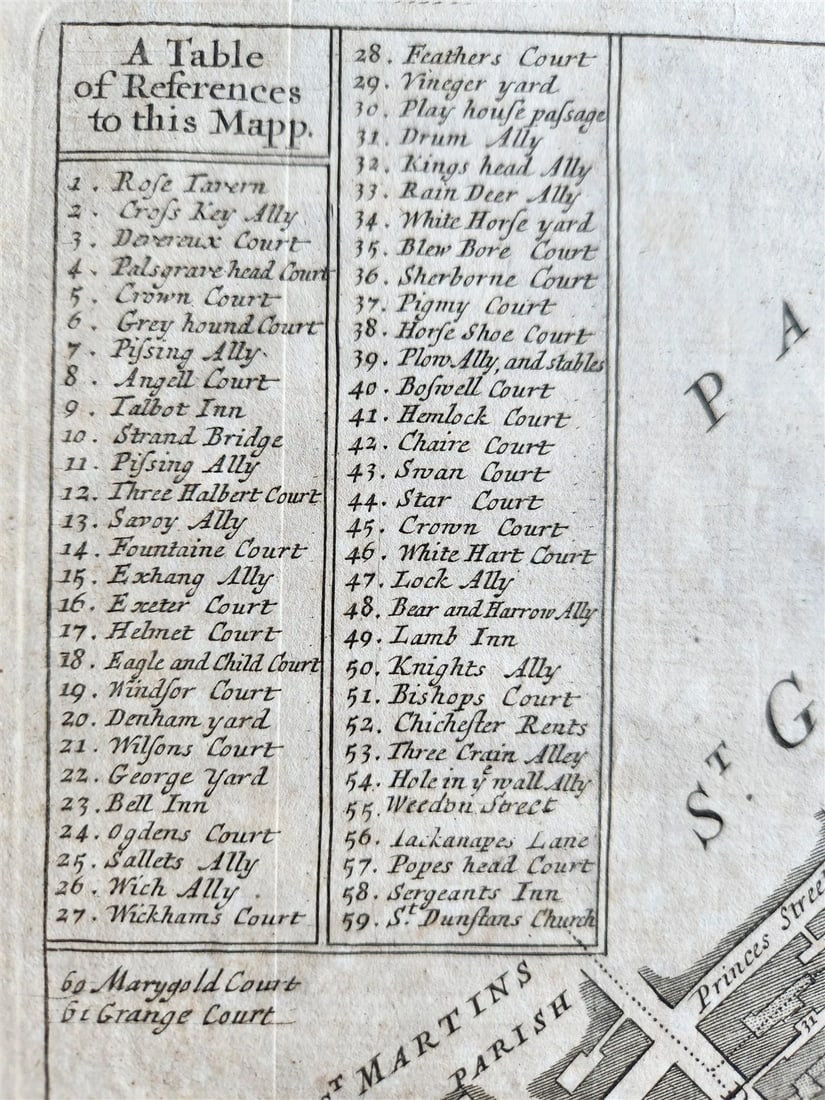 A Table
of References
to this Mapp.
1. Roſe Tavern
2. Croſs Key Ally
3. Devereux Court
4. Palsgrave head Court
5. Crown Court
6. Grey hound Court
7. Piſsing Ally
8. Angell Court
9. Talbot Inn
10. Strand Bridge
11. Piſsing Ally
12. Three Halbert Court
13. Savoy Ally
14. Fountaine Court
15. Exhang Ally
16. Exeter Court
17. Helmet Court
18. Eagle and Child Court
19. Windſor Court
20. Denham yard
21. Wilſons Court
22. George Yard
23. Bell Inn
24. Ogdens Court
25. Sallets Ally
26. Wich Ally.
27. Wickhams Court
28. Feathers Court
29. Vineger yard
30. Play houſe paſsage
31. Drum Ally
32. Kings head Ally
33. Rain Deer Ally
34. White Horſe yard
35. Blew Bore Court
36. Sherborne Court
37. Pigmy Court
38. Horſe Shoe Court
39. Plow Ally, and stables
40. Boſwell Court
41. Hemlock Court
42. Chaire Court
43. Swan Court
44. Star Court
45. Crown Court
46. White Hart Court
47. Lock Ally
48. Bear and Harrow Ally
49. Lamb Inn
50. Knights Ally
51. Bishops Court
52. Chicheſter Rents
53. Three Crain Alley
54. Hole in yͤ wall Ally
55. Weedon Street
56. Iackanapes Lane
57. Popes head Court
58. Sergeants Inn
59. Sᵗ. Dunſtans Church
60 Marygold Court
61 Grange Court
PA
Sᵀ. G
Princes Street
31
Sᵀ MARTINS
PARISH